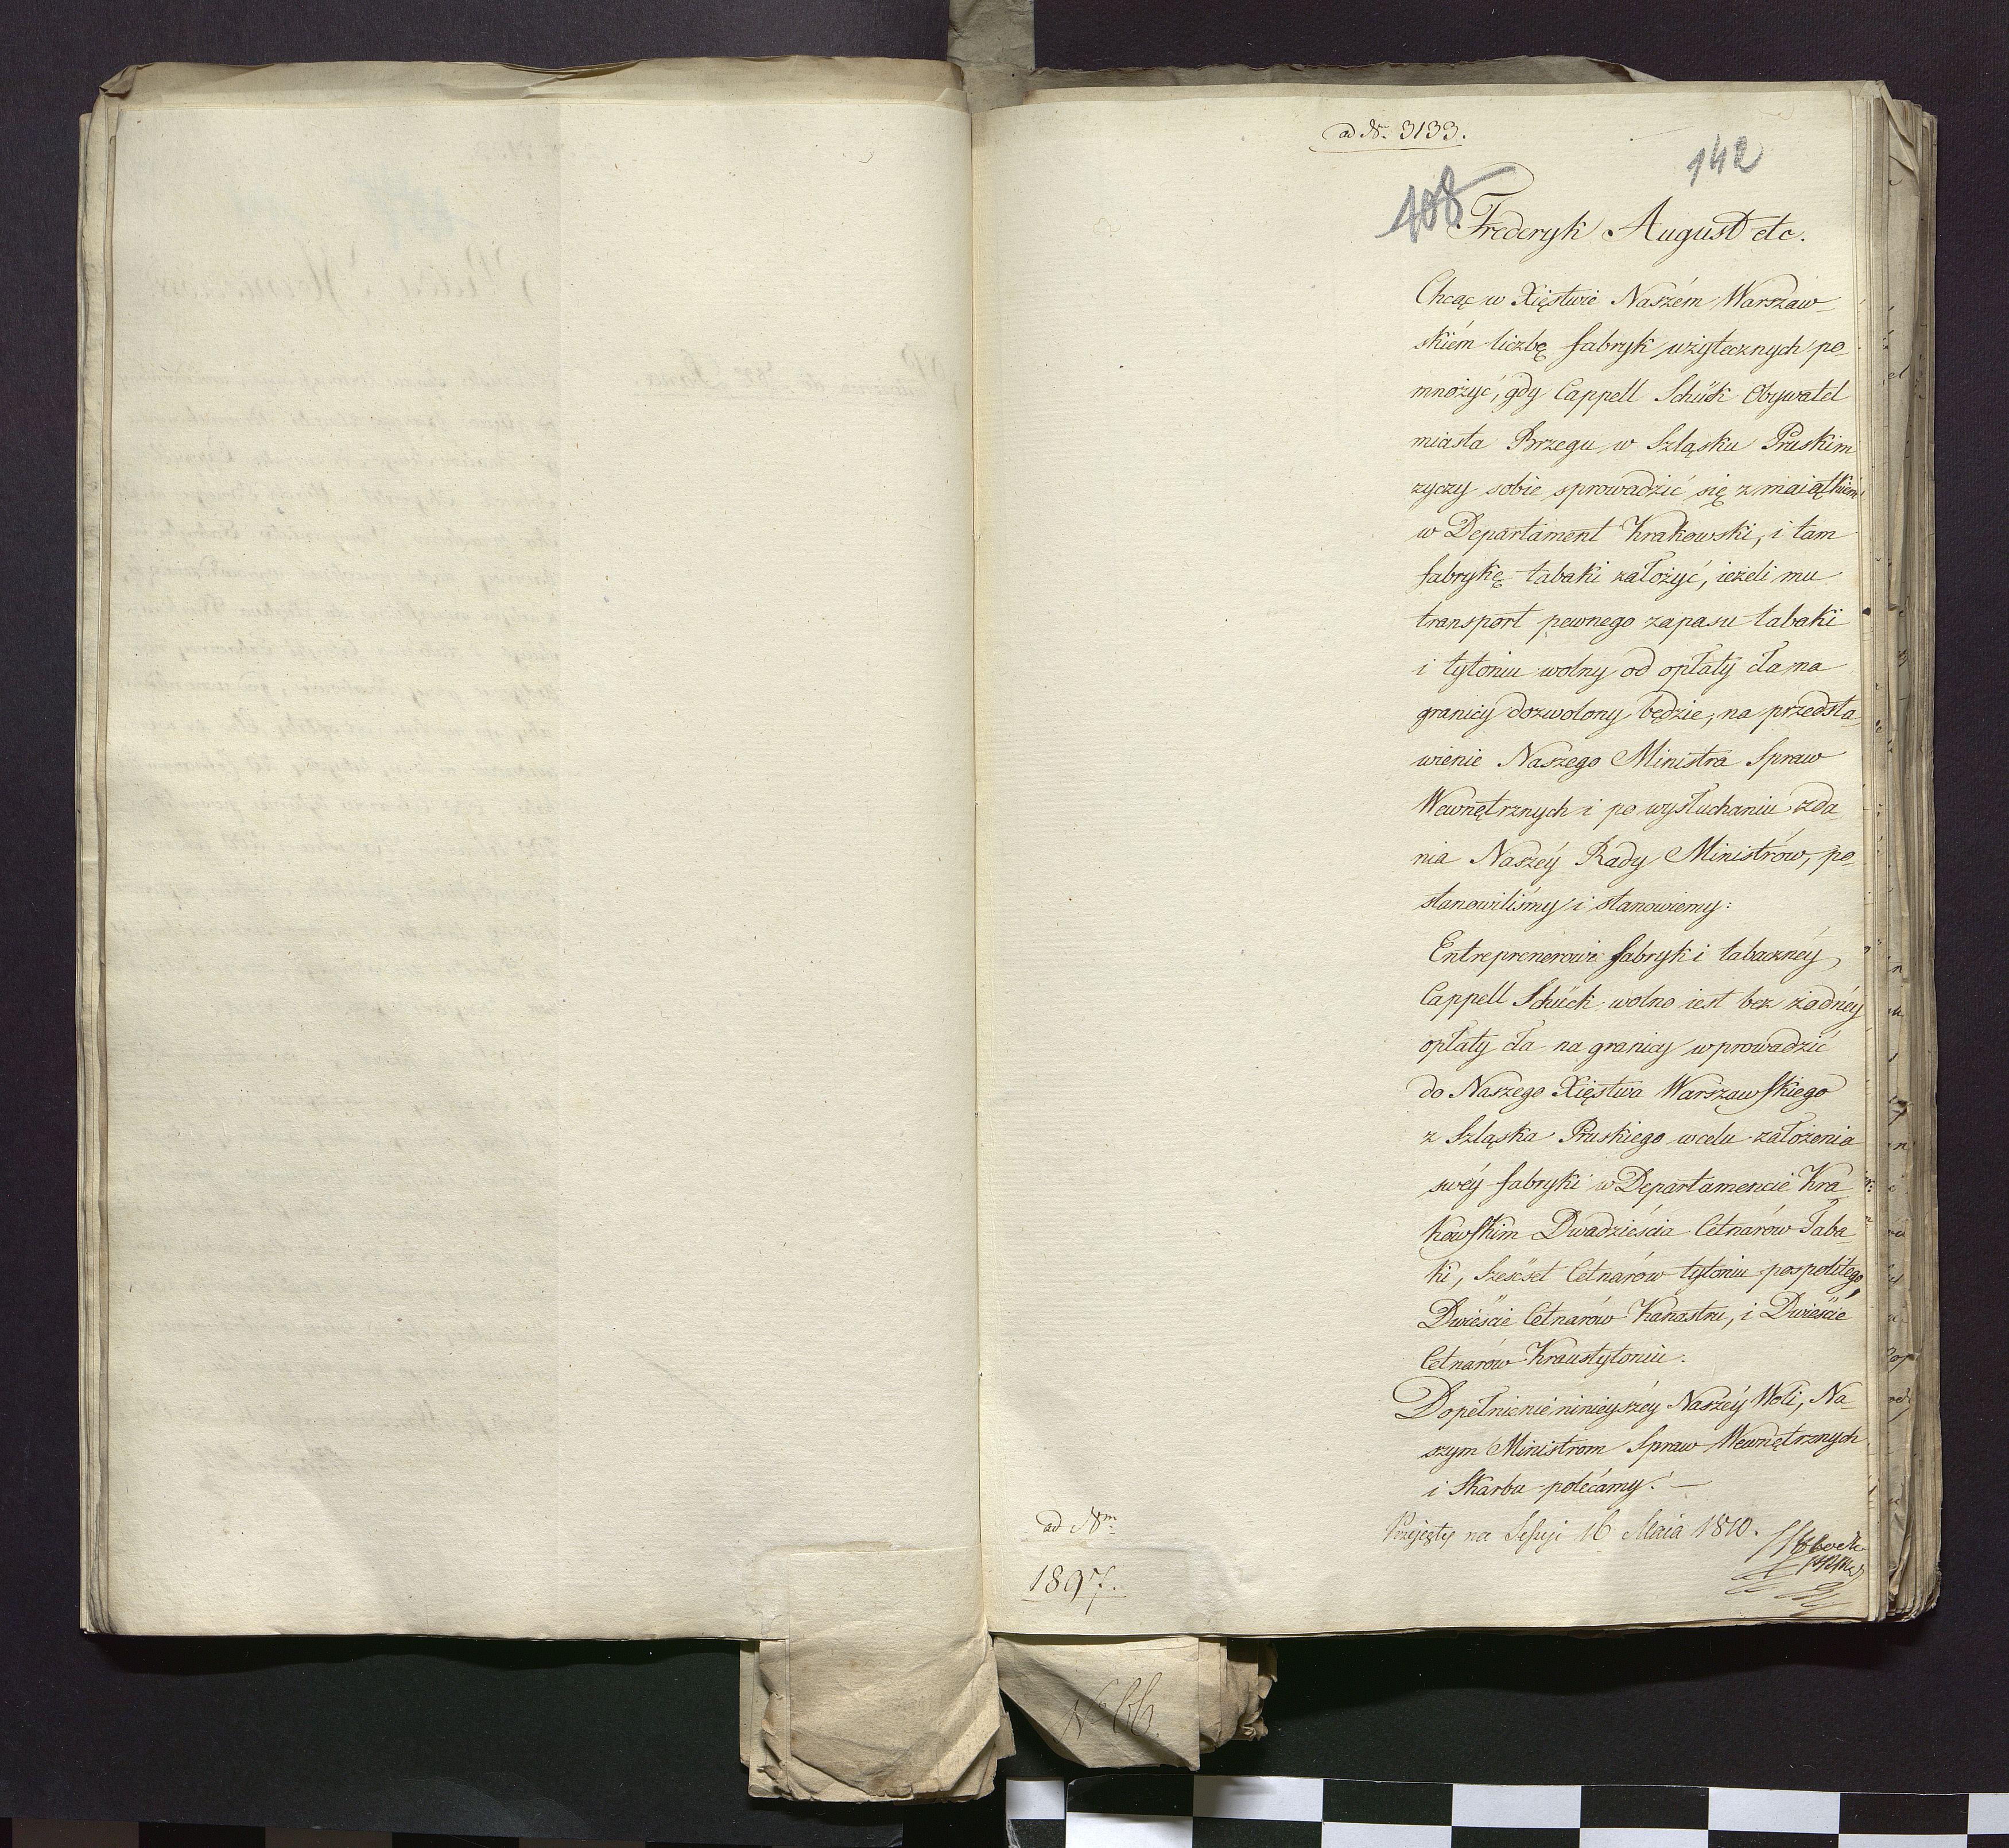 ad N. 3133.
142
108
Frederyk August etc.
Chcąc w Xięstwie Naszém Warszaw-
skiém liczbę fabryk użytecznych po-
mnożyć, gdy Cappell Schück Obywatel
miasta Brzegu w Szląsku Pruskim
zyczy sobie sprowadzić się z maiątkiem
w Departament Krakowski, i tam
fabrykę tabaki założyć, ieżeli mu
transport pewnego zapasu tabaki
i tytoniu wolny od opłaty cła na
granicy dozwolony będzie, na przedsta-
wienie Naszego Ministra Spraw
Wewnętrznych i po wysłuchaniu zda-
nia Naszéy Rady Ministrów, po-
stanowiliśmy i stanowiemy:
Entreprenerowi fabryki tabaczney,
Cappell Schück wolno iest bez żadnéy
opłaty cła na granicy wprowadzić
do Naszego Xięstwa Warszawskiego
z Szląska Pruskiego w celu założenia
swéy fabryki w Departamencie Kra-
kowskim Dwadzieścia Cetnarów Taba-
ki, Sześćset Cetnarów tytoniu pospolitego,
Dwieście Cetnarów Kanastru, i Dwieście
Cetnarów Kraustytoniu.
Dopełnienie ninieyszéy Naszéy Woli, Na-
szym Ministrom Spraw Wewnętrznych
i Skarbu polécamy. —
Przyięty na Sessyi 16 Maia 1810.
ad Nm
1897.
No 66.